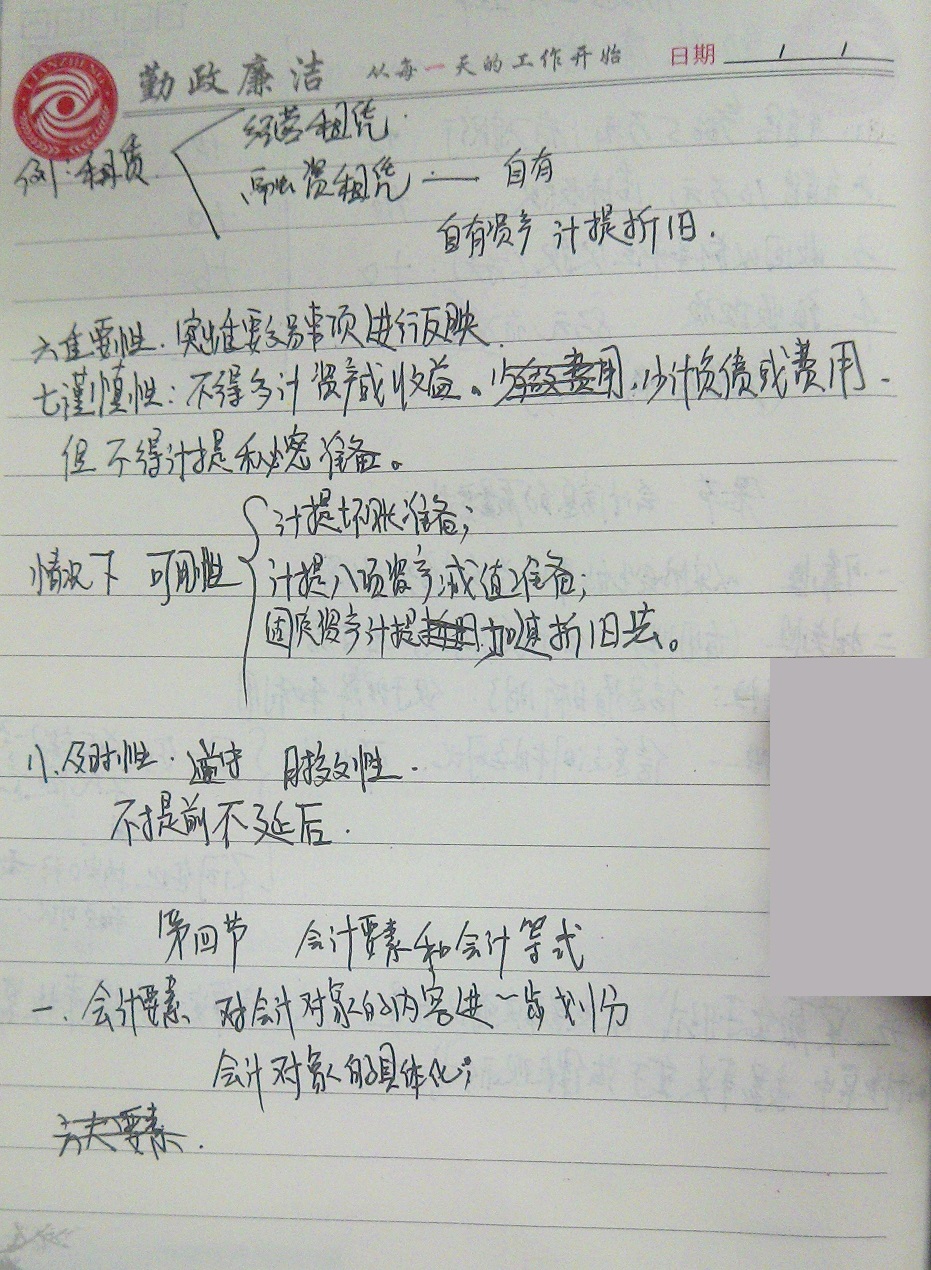 LIANZHENG
勤政廉洁 从每一天的工作开始 日期 / /
经营租凭.
例:租赁.
融资租凭 —— 自有
自有资产计提折旧.
六重要性.突出重要交易事项进行反映.
七谨慎性:不得多计资产或收益。少计负债或费用.
但不得计提秘密准备。
计提坏账准备;
情况下 可用性
计提八项资产减值准备;
固定资产计提加速折旧法。
八、及时性. 遵守 时效性.
不提前不延后.
第四节 会计要素和会计等式
一.会计要素 对会计对象的内容进一步划分
会计对象的具体化;
六大要素.